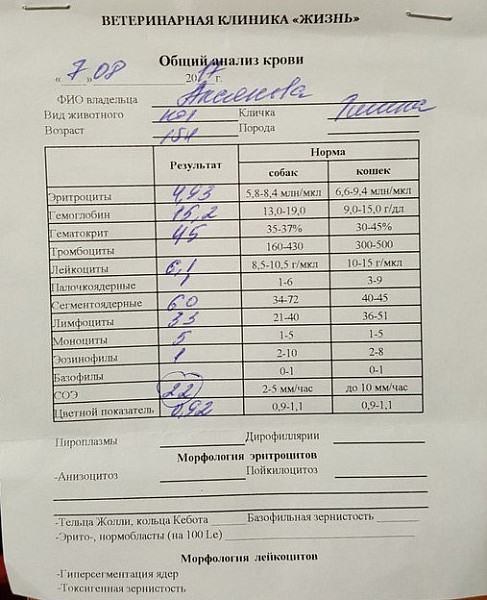 ВЕТЕРИНАРНАЯ КЛИНИКА «ЖИЗНЬ»
Общий анализ крови
« 7 » 08 2017 г.
ФИО владельца Аксенова
Вид животного Кличка
Возраст Порода
Результат Норма
собак кошек
Эритроциты 4,93 5,8-8,4 млн/мкл 6,6-9,4 млн/мкл
Гемоглобин 15,2 13,0-19,0 9,0-15,0 г/дл
Гематокрит 45 35-37% 30-45%
Тромбоциты 160-430 300-500
Лейкоциты 6,1 8,5-10,5 г/мкл 10-15 г/мкл
Палочкоядерные 1 1-6 3-9
Сегментоядерные 60 34-72 40-45
Лимфоциты 33 21-40 36-51
Моноциты 5 1-5 1-5
Эозинофилы 1 2-10 2-8
Базофилы 0-1 0-1
СОЭ 22 2-5 мм/час до 10 мм/час
Цветной показатель 0,92 0,9-1,1 0,9-1,1
Пироплазмы Дирофиллярии
Морфология эритроцитов
-Анизоцитоз Пойкилоцитоз
-Тельца Жолли, кольца Кебота Базофильная зернистость
-Эрито-, нормобласты (на 100 Le)
Морфология лейкоцитов
-Гиперсегментация ядер
-Токсигенная зернистость